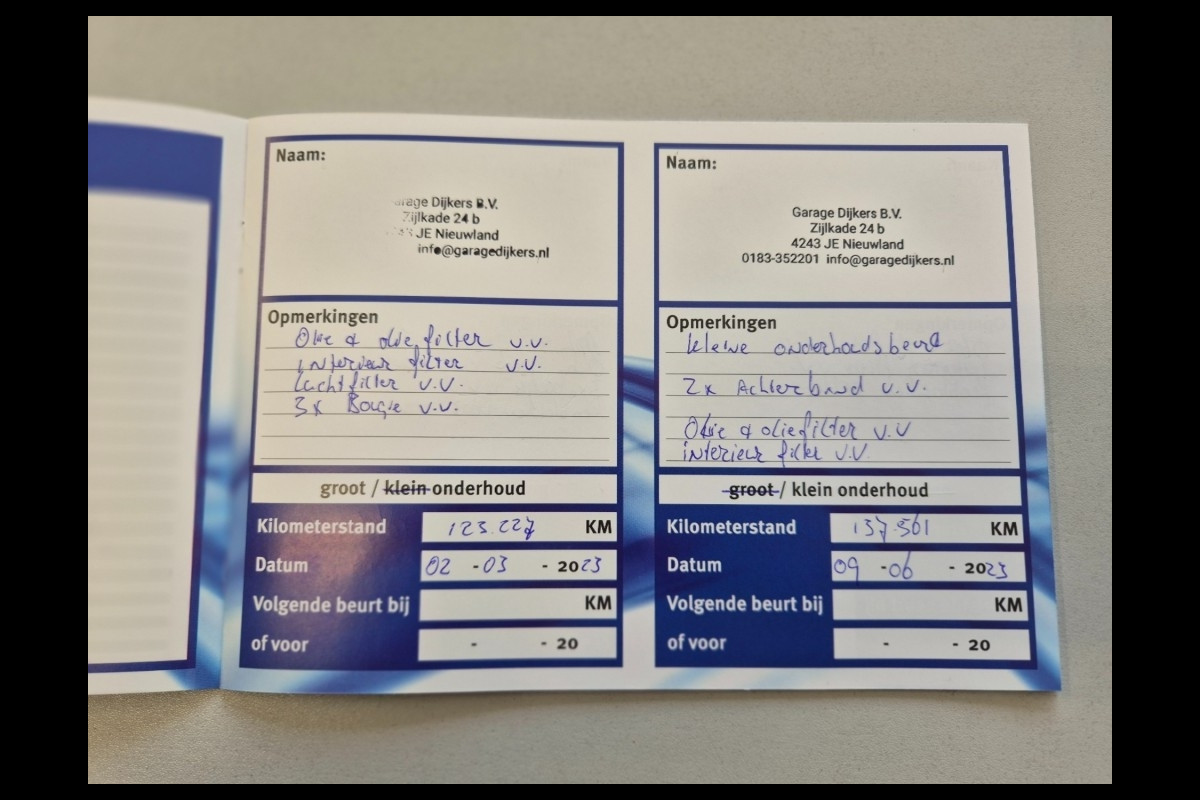 Naam:
Garage Dijkers B.V.
Zijlkade 24 b
43 JE Nieuwland
info@garagedijkers.nl
Opmerkingen
Olie & olie filter v.v.
interieur filter v.v.
Luchtfilter v.v.
3x Bougie v.v.
groot / klein onderhoud
Kilometerstand 123.227 KM
Datum 02 - 03 - 2023
Volgende beurt bij KM
of voor - - 20
Naam:
Garage Dijkers B.V.
Zijlkade 24 b
4243 JE Nieuwland
0183-352201 info@garagedijkers.nl
Opmerkingen
kleine onderhoudsbeurt
2x Achterband v.v.
Olie & oliefilter v.v
interieur filter v.v.
groot / klein onderhoud
Kilometerstand 137.561 KM
Datum 09 - 06 - 2023
Volgende beurt bij KM
of voor - - 20